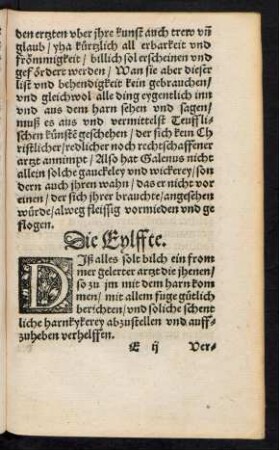 den ertzten vber ihre kunst auch trew vñ
glaub / yha kürtzlich all erbarkeit vnd
frömmigkeit / billich sol erscheinen vnd
gefördert werden / Wan sie aber dieser
list vnd behendigkeit kein gebrauchen /
vnd gleichwol alle ding eygentlich inn
vnd aus dem harn sehen vnd sagen /
muß es aus vnd vermittelst Teuffli-
schen künstē geschehen / der sich kein Ch
ristlicher / redlicher noch rechtschaffener
artzt annimpt / Also hat Galenus nicht
allein solche gauckeley vnd wickerey / son
dern auch ihren wahn / das er nicht vor
einen / der sich ihrer brauchte / angesehen
würde / alweg fleissig vormieden vnd ge
flogen.
Die Eylffte.
DIß alles solt bilch ein from
mer gelerter artzt die jhenen /
so zu jm mit dem harn kom
men / mit allem fuge gütlich
berichten / vnd soliche schent
liche harnkykerey abzustellen vnd auff-
zuheben verhelffen.
E ij Ver-